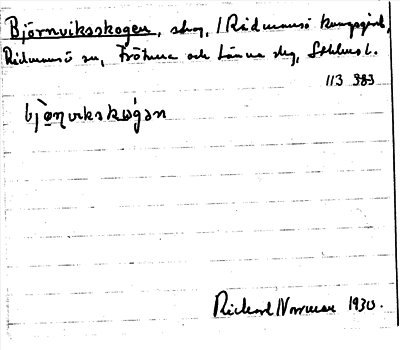 Björnviksskogen, skog, / Rådmansö kungsgård,
Rådmansö sn, Frötuna och Länna slg, Sthlms l.
113 383
bjö̱ɳvikskωgən
Rickard Norrman 1930.